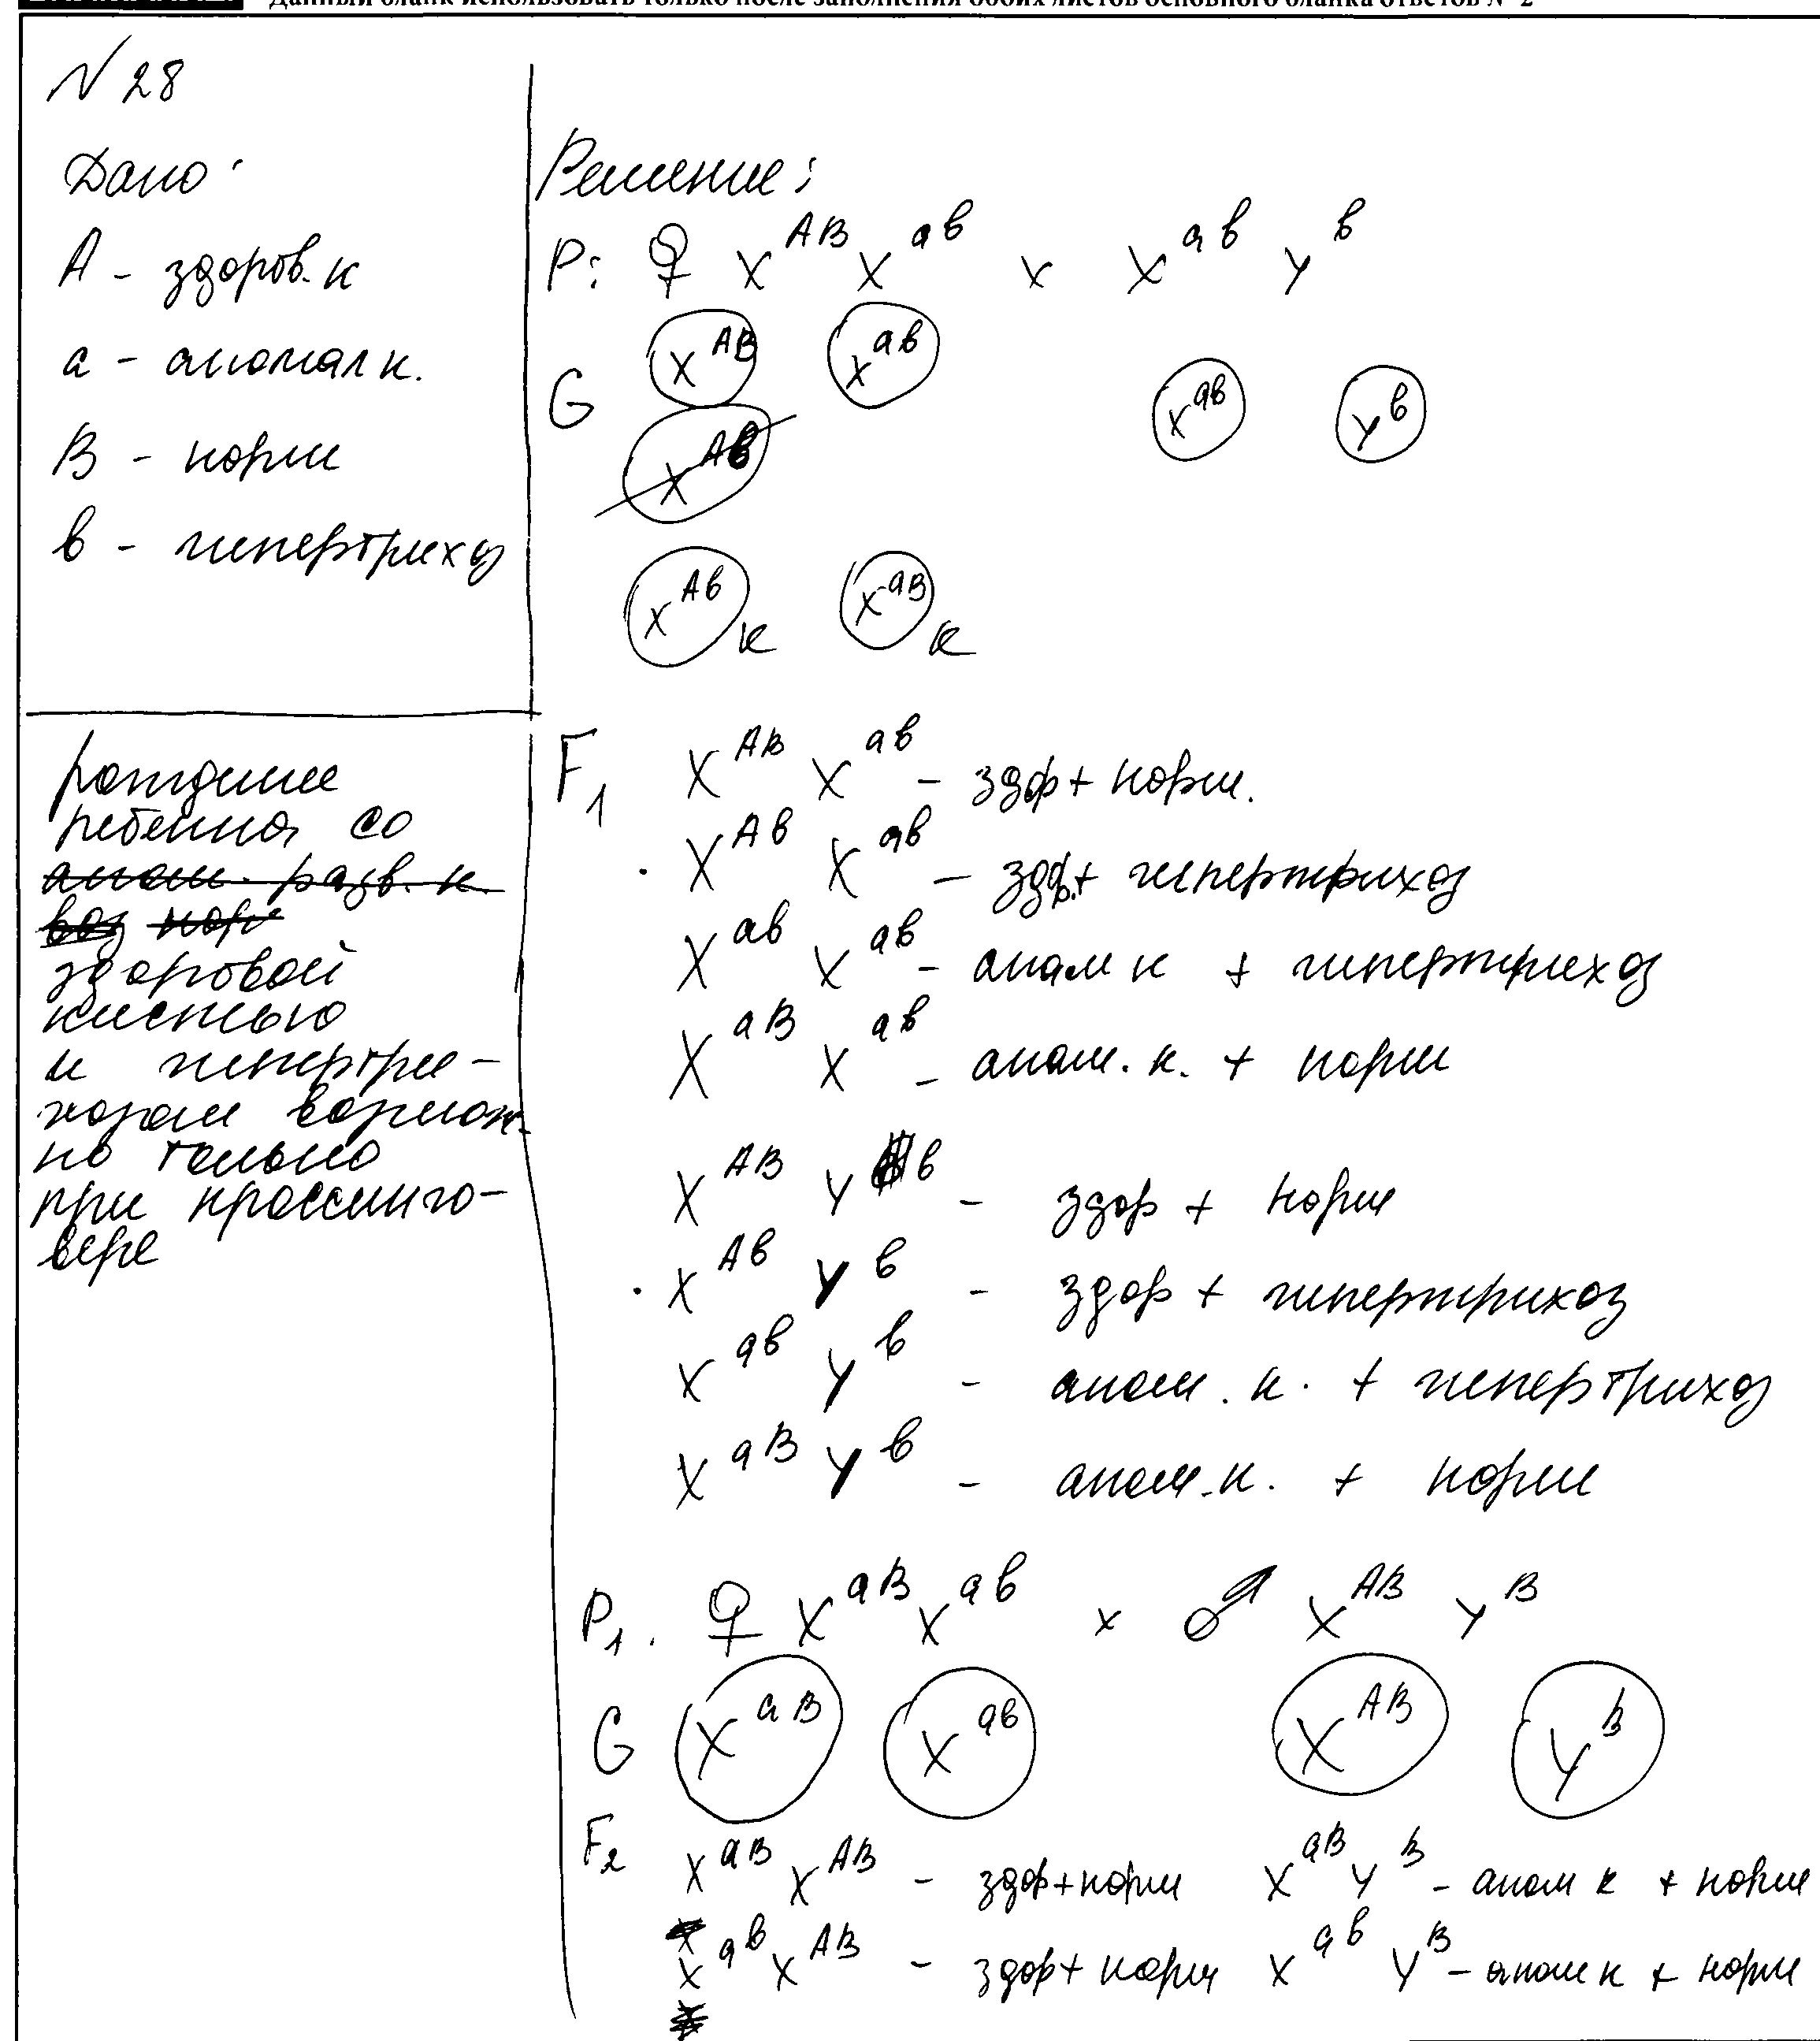 Данный бланк использовать только после заполнения обоих листов основного бланка ответов № 2
N 28
Дано:
A - здоров. к
a - аномал к.
B - норм
в - гипертрихоз
рождение
ребенка со
аном. разв. к.
здоровой
кистью
и гипертри-
хозом возмож-
но только
при кроссинго-
вере
Решение:
P: ♀ X^AB X^aв x X^aв Y^в
G X^AB X^aв X^aв Y^в
X^Aв
X^Aв к X^aB к
F1 X^AB X^aв - здор + норм.
· X^Aв X^aв - здор. + гипертрихоз
X^aв X^aв - аном к + гипертрихоз
X^aB X^aв - аном. к. + норм
X^AB Y^в - здор + норм
· X^Aв Y^в - здор + гипертрихоз
X^aв Y^в - аном. к. + гипертрихоз
X^aB Y^в - аном. к. + норм
P1. ♀ X^aB X^aв x ♂ X^AB Y^B
G X^aB X^aв X^AB Y^B
F2 X^aB X^AB - здор + норм X^aB Y^B - аном к + норм
X^aв X^AB - здор + норм X^aв Y^B - аном к + норм